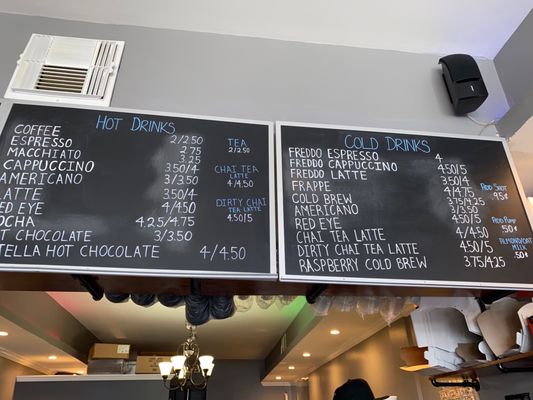 HOT DRINKS
COFFEE 2/2.50
ESPRESSO 2.75
MACCHIATO 3.25
CAPPUCCINO 3.50/4
AMERICANO 3/3.50
LATTE 3.50/4
RED EYE 4/4.50
OCHA 4.25/4.75
T CHOCOLATE 3/3.50
TELLA HOT CHOCOLATE 4/4.50
TEA
2/2.50
CHAI TEA
LATTE
4/4.50
DIRTY CHAI
TEA LATTE
4.50/5
COLD DRINKS
FREDDO ESPRESSO 4
FREDDO CAPPUCCINO 4.50/5
FREDDO LATTE 3.50/4
FRAPPE 4/4.75
COLD BREW 3.75/4.25
AMERICANO 3.50/4
RED EYE 4.50/5
CHAI TEA LATTE 4/4.50
DIRTY CHAI TEA LATTE 4.50/5
RASPBERRY COLD BREW 3.75/4.25
ADD SHOT
.95¢
ADD PUMP
.50¢
MILK
.50¢